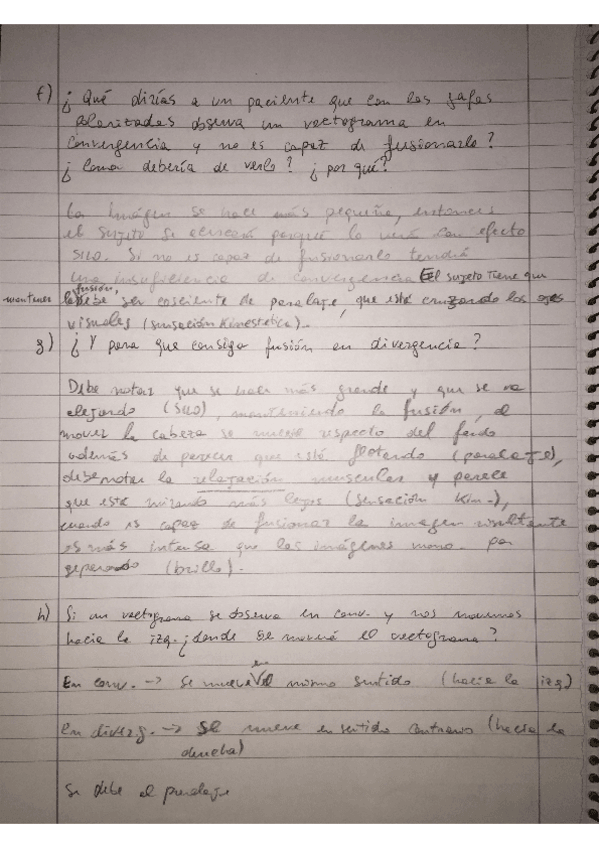 f) ¿Qué dirías a un paciente que con las gafas
polarizadas observa un vectograma en
convergencia y no es capaz de fusionarlo?
¿Como debería de verlo? ¿por qué?
La imágen se hace más pequeña, entonces
el sujeto se acercará porque lo verá con efecto
SILO. Si no es capaz de fusionarlo tendrá
una insuficiencia de convergencia. El sujeto tiene que
mantener la fusión, debe ser cosciente de paralaje, que está cruzando los ejes
visuales (sensación kinestética).
g) ¿Y para que consiga fusión en divergencia?
Debe notar que se hace más grande y que se va
alejando (SILO), manteniendo la fusión, al
mover la cabeza se mueve respecto del fondo
además de parecer que está flotando (paralaje),
debe notar la relajación muscular y parece
que esté mirando más lejos (sensación kin.),
cuando es capaz de fusionar la imagen resultante
es más intensa que las imágenes mono. por
separado (brillo).
h) Si un vectograma se observa en conv. y nos movemos
hacia la izq. ¿donde se moverá el vectograma?
En conv. -> Se mueve en el mismo sentido (hacia la izq)
En diverg. -> se mueve en sentido contrario (hacia la
derecha)
Se debe al paralaje